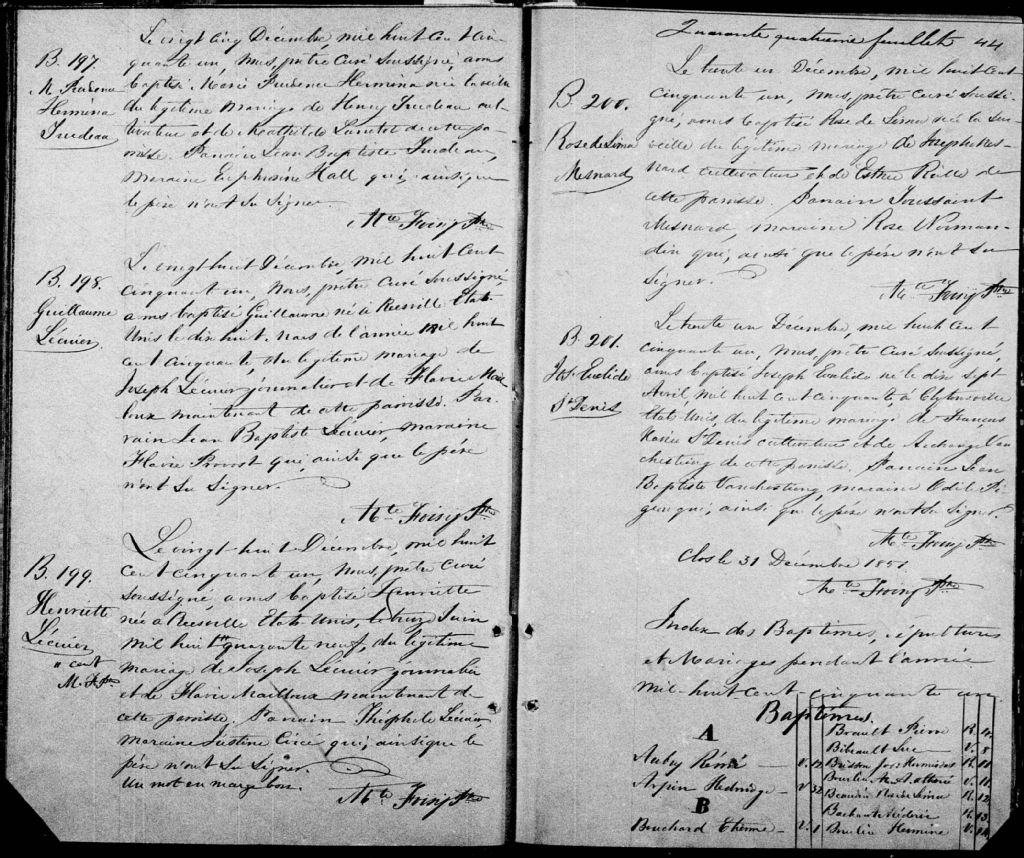 B. 197.
M. Prudence
Hermina
Trudeau
Le vingt cinq Décembre, mil huit cent cin-
quante un, nous, prêtre Curé soussigné, avons
baptisé Marie Prudence Hermina née la veille
du légitime mariage de Henry Trudeau cul-
tivateur et de Mathilde de cette pa-
roisse. Parrain Jean Baptiste Trudeau,
Maraine Euphrosine Hall qui, ainsi que
le père n'ont su signer.
Mce Foisy Ptre
B. 198.
Guillaume
Lécuier
Le vingt huit Décembre, mil huit cent
cinquante un, nous, prêtre Curé soussigné,
avons baptisé Guillaume né à Keesville Etats
Unis le dix huit Mars de l'année mil huit
cent cinquante, du légitime mariage de
Joseph Lécuier journalier et de Flavie Mail-
loux maintenant de cette paroisse. Par-
rain Jean Baptiste Lécuier, maraine
Flavie Provost qui, ainsi que le père
n'ont su signer.
Mce Foisy Ptre
B. 199.
Henriette
Lécuier
" cent
M. F. ptre
Le vingt huit Décembre, mil huit
cent cinquante un, nous, prêtre Curé
soussigné, avons baptisé Henriette
née à Keesville Etats Unis, le Juin
mil huit " quarante neuf, du légitime
mariage de Joseph Lécuier journalier
et de Flavie Mailloux maintenant de
cette paroisse. Parrain Théophile Lécuier,
maraine Justine Circé qui, ainsi que le
père n'ont su signer.
Un mot en marge bon.
Mce Foisy Ptre
Quarante quatrième feuillet 44
B. 200.
Rose de Lima
Mesnard
Le trente un Décembre, mil huit cent
cinquante un, nous, prêtre Curé soussi-
gné, avons baptisé Rose de Lima née la sur-
veille du légitime mariage de Joseph Mes-
nard cultivateur et de Esther de
cette paroisse. Parrain Toussaint
Mesnard, maraine Rose Norman-
din qui, ainsi que le père n'ont su
signer.
Mce Foisy Ptre
B. 201.
Jos. Euclide
St Denis
Le trente un Décembre, mil huit cent
cinquante un, nous, prêtre Curé soussigné,
avons baptisé Joseph Euclide né le dix sept
Avril, mil huit cent cinquante, à
Etats Unis, du légitime mariage de François
Xavier St Denis cultivateur et de Archange Van
chesteing de cette paroisse. Parrain Jean
Baptiste Vanchesteing, maraine Odile Pi-
geon qui, ainsi que le père n'ont su signer.
Mce Foisy Ptre
Clos le 31 Décembre 1851.
Mce Foisy Ptre
Index des Baptêmes, sépultures
et Mariages pendant l'année
mil-huit cent-cinquante un
Baptêmes.
A
Aubry Rémi — V. 12
Arpin Hedwige — V. 32
B
Bouchard Etienne — V. 1
Brault Pierre R. 4.
Bibeault Luc — V. 8
Brisson Jos. Hermidas R. 10
Bourbin V. 11.
Beaudin Marie Lima R. 12
R. 13
Boulin Hermine V. 14